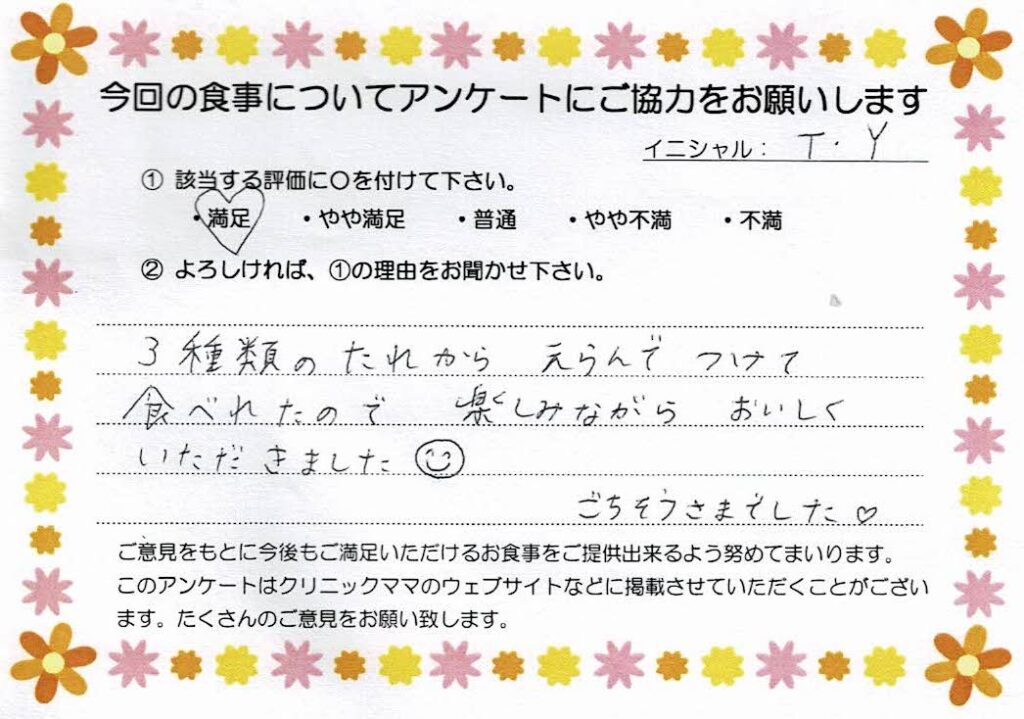 今回の食事についてアンケートにご協力をお願いします
イニシャル： T・Y
① 該当する評価に〇を付けて下さい。
・満足 ・やや満足 ・普通 ・やや不満 ・不満
② よろしければ、①の理由をお聞かせ下さい。
3種類のたれから えらんで つけて
食べれたので 楽くしみながら おいしく
いただきました
ごちそうさまでした♡
ご意見をもとに今後もご満足いただけるお食事をご提供出来るよう努めてまいります。
このアンケートはクリニックママのウェブサイトなどに掲載させていただくことがござい
ます。たくさんのご意見をお願い致します。